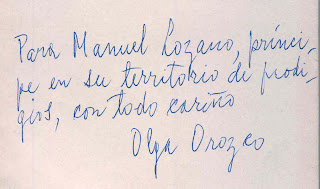 Para Manuel Lozano, prínci-
pe en su territorio de prodi-
gios, con todo cariño
Olga Orozco